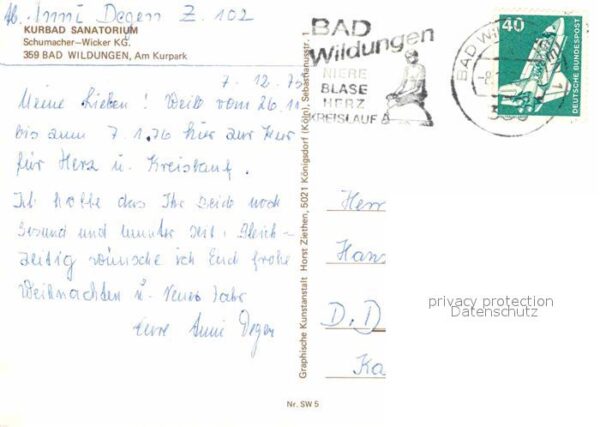 Ab. Anni Degen Z. 102
KURBAD SANATORIUM
Schumacher-Wicker KG.
359 BAD WILDUNGEN, Am Kurpark
7. 12. 75
Meine Lieben! Weile vom 26.11
bis zum 7.1.76 hier zur Kur
für Herz u. Kreislauf.
Ich hoffe das Ihr seid noch
Gesund und munter seit. Gleich-
zeitig wünsche ich Euch frohe
Weihnachten u. Neues Jahr
Eure Anni Degen
BAD
Wildungen
NIERE
BLASE
HERZ
KREISLAUF
BAD
40
DEUTSCHE BUNDESPOST
Graphische Kunstanstalt Horst Ziethen, 5021 Königsdorf (Köln), Sebastianusstr. 1
Herr
Hans
D. D
Ka
privacy protection
Datenschutz
Nr. SW 5